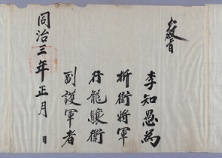 教旨
李知愚爲
折衝將軍
行龍驤衛
副護軍者
同治三年正月　日